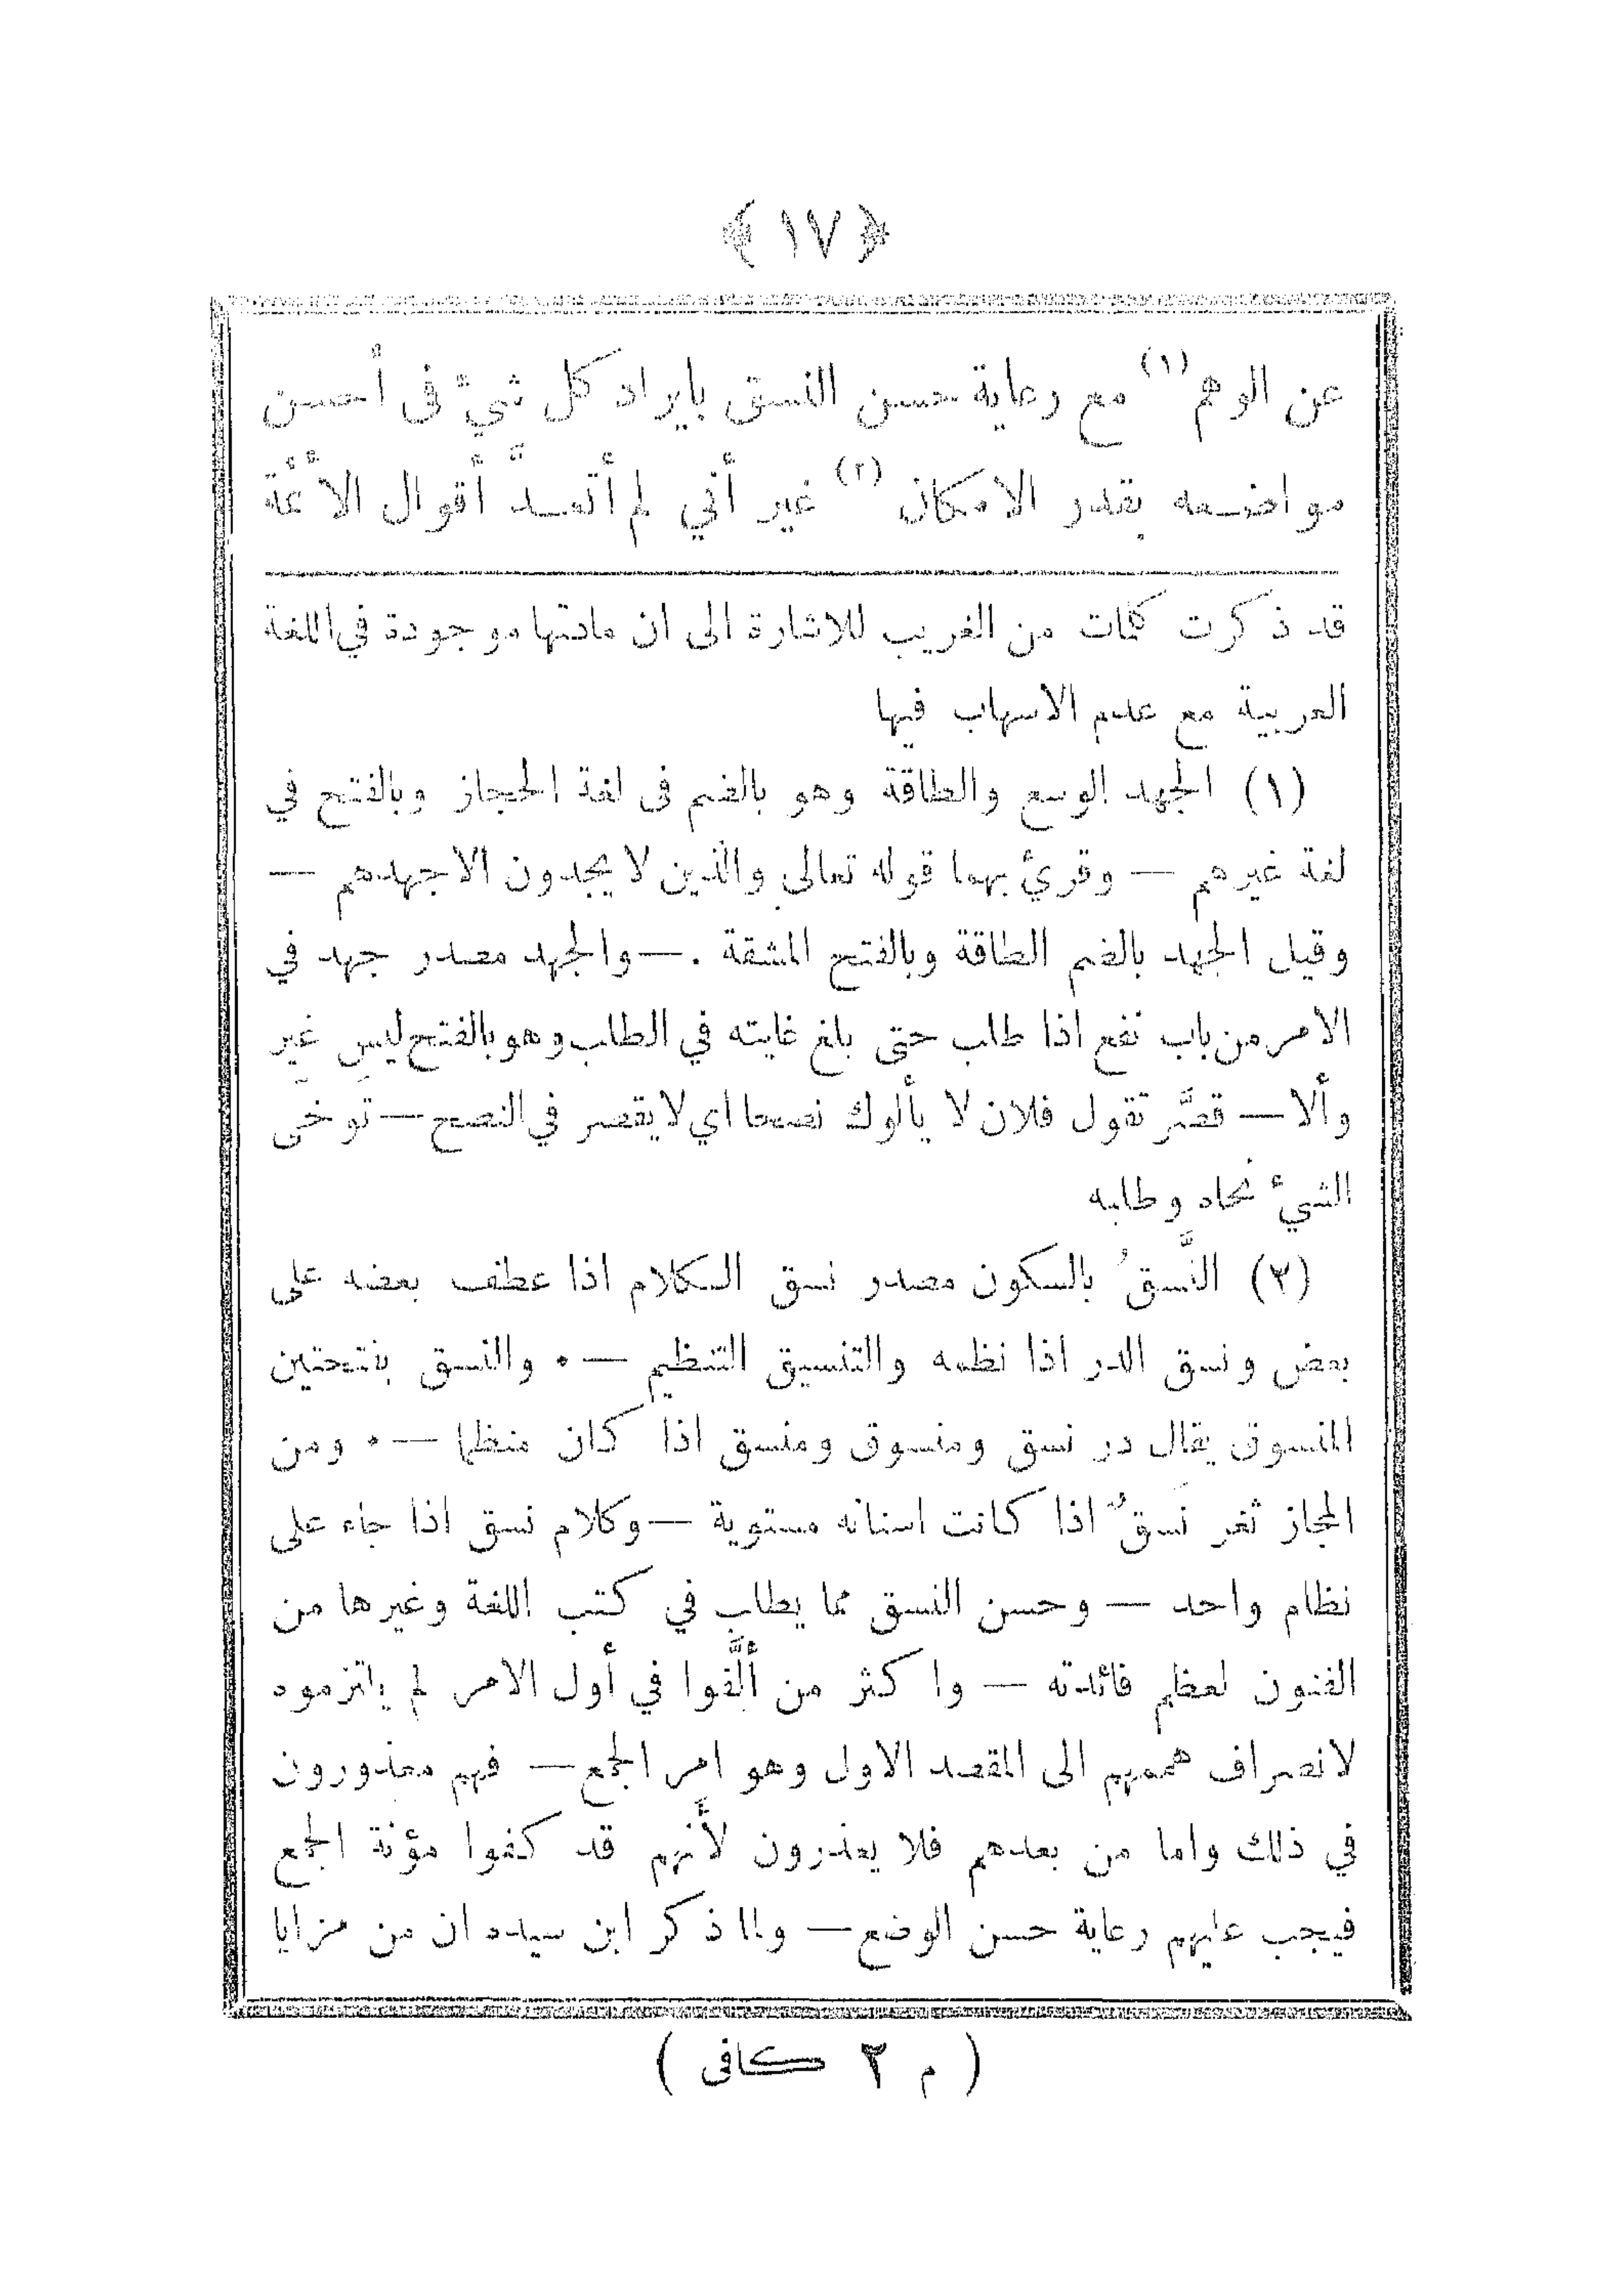 ﴿ ١٧ ﴾
عن الوهم (١) مع رعاية حسن النسق بايراد كل شيء فى أحسن
مواضعه بقدر الامكان (٢) غير أني لم أتعدَّ أقوال الأئمة
قد ذكرت كلمات من الغريب للاشارة الى ان مادتها موجودة في اللغة
العربية مع عدم الاسهاب فيها
(١) الجهد الوسع والطاقة وهو بالضم فى لغة الحجاز وبالفتح في
لغة غيرهم — وقرئ بهما قوله تعالى والذين لا يجدون الا جهدهم —
وقيل الجهد بالضم الطاقة وبالفتح المشقة .— والجهد مصدر جهد في
الامر من باب نفع اذا طلب حتى بلغ غايته في الطلب وهو بالفتح ليس غيرَ
وألا — قصَّر تقول فلان لا يألوك نصحا اي لا يقصر في النصح — تَوخَّى
الشيء نحاه وطلبه
(٢) النَّسقُ بالسكون مصدر نسق الكلام اذا عطف بعضه على
بعض ونسق الدر اذا نظمه والتنسيق التنظيم —٠ والنسق بفتحتين
المنسوق يقال در نسق ومنسوق ومنسق اذا كان منظما —٠ ومن
المجاز ثغر نَسَقٌ اذا كانت اسنانه مستوية — وكلام نسق اذا جاء على
نظام واحد — وحسن النسق مما يطلب في كتب اللغة وغيرها من
الفنون لعظم فائدته — واكثر من ألَّفوا في أول الامر لم يلتزموه
لانصراف هممهم الى المقصد الاول وهو امر الجمع — فهم معذورون
في ذلك واما من بعدهم فلا يعذرون لأنهم قد كفوا مؤنة الجمع
فيجب عليهم رعاية حسن الوضع — ولما ذكر ابن سيده ان من مزايا
( م ٢ كافى )